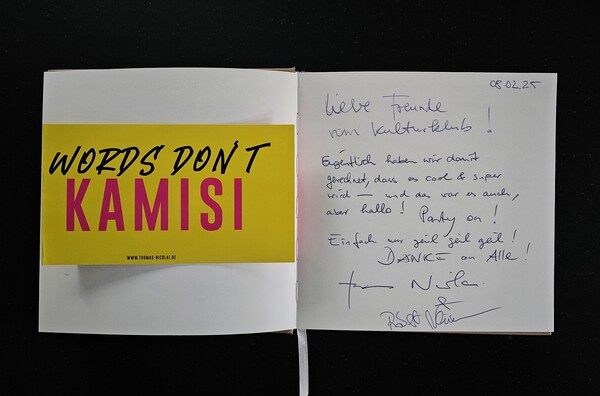 WORDS DON'T
KAMISI
WWW.THOMAS-NICOLAI.DE
08.02.25
Liebe Freunde
vom Kulturklub!
Eigentlich haben wir damit
gerechnet, dass es cool & super
wird – und das war es auch,
aber hallo! Party on!
Einfach nur geil geil geil!
DANKE an Alle!
&